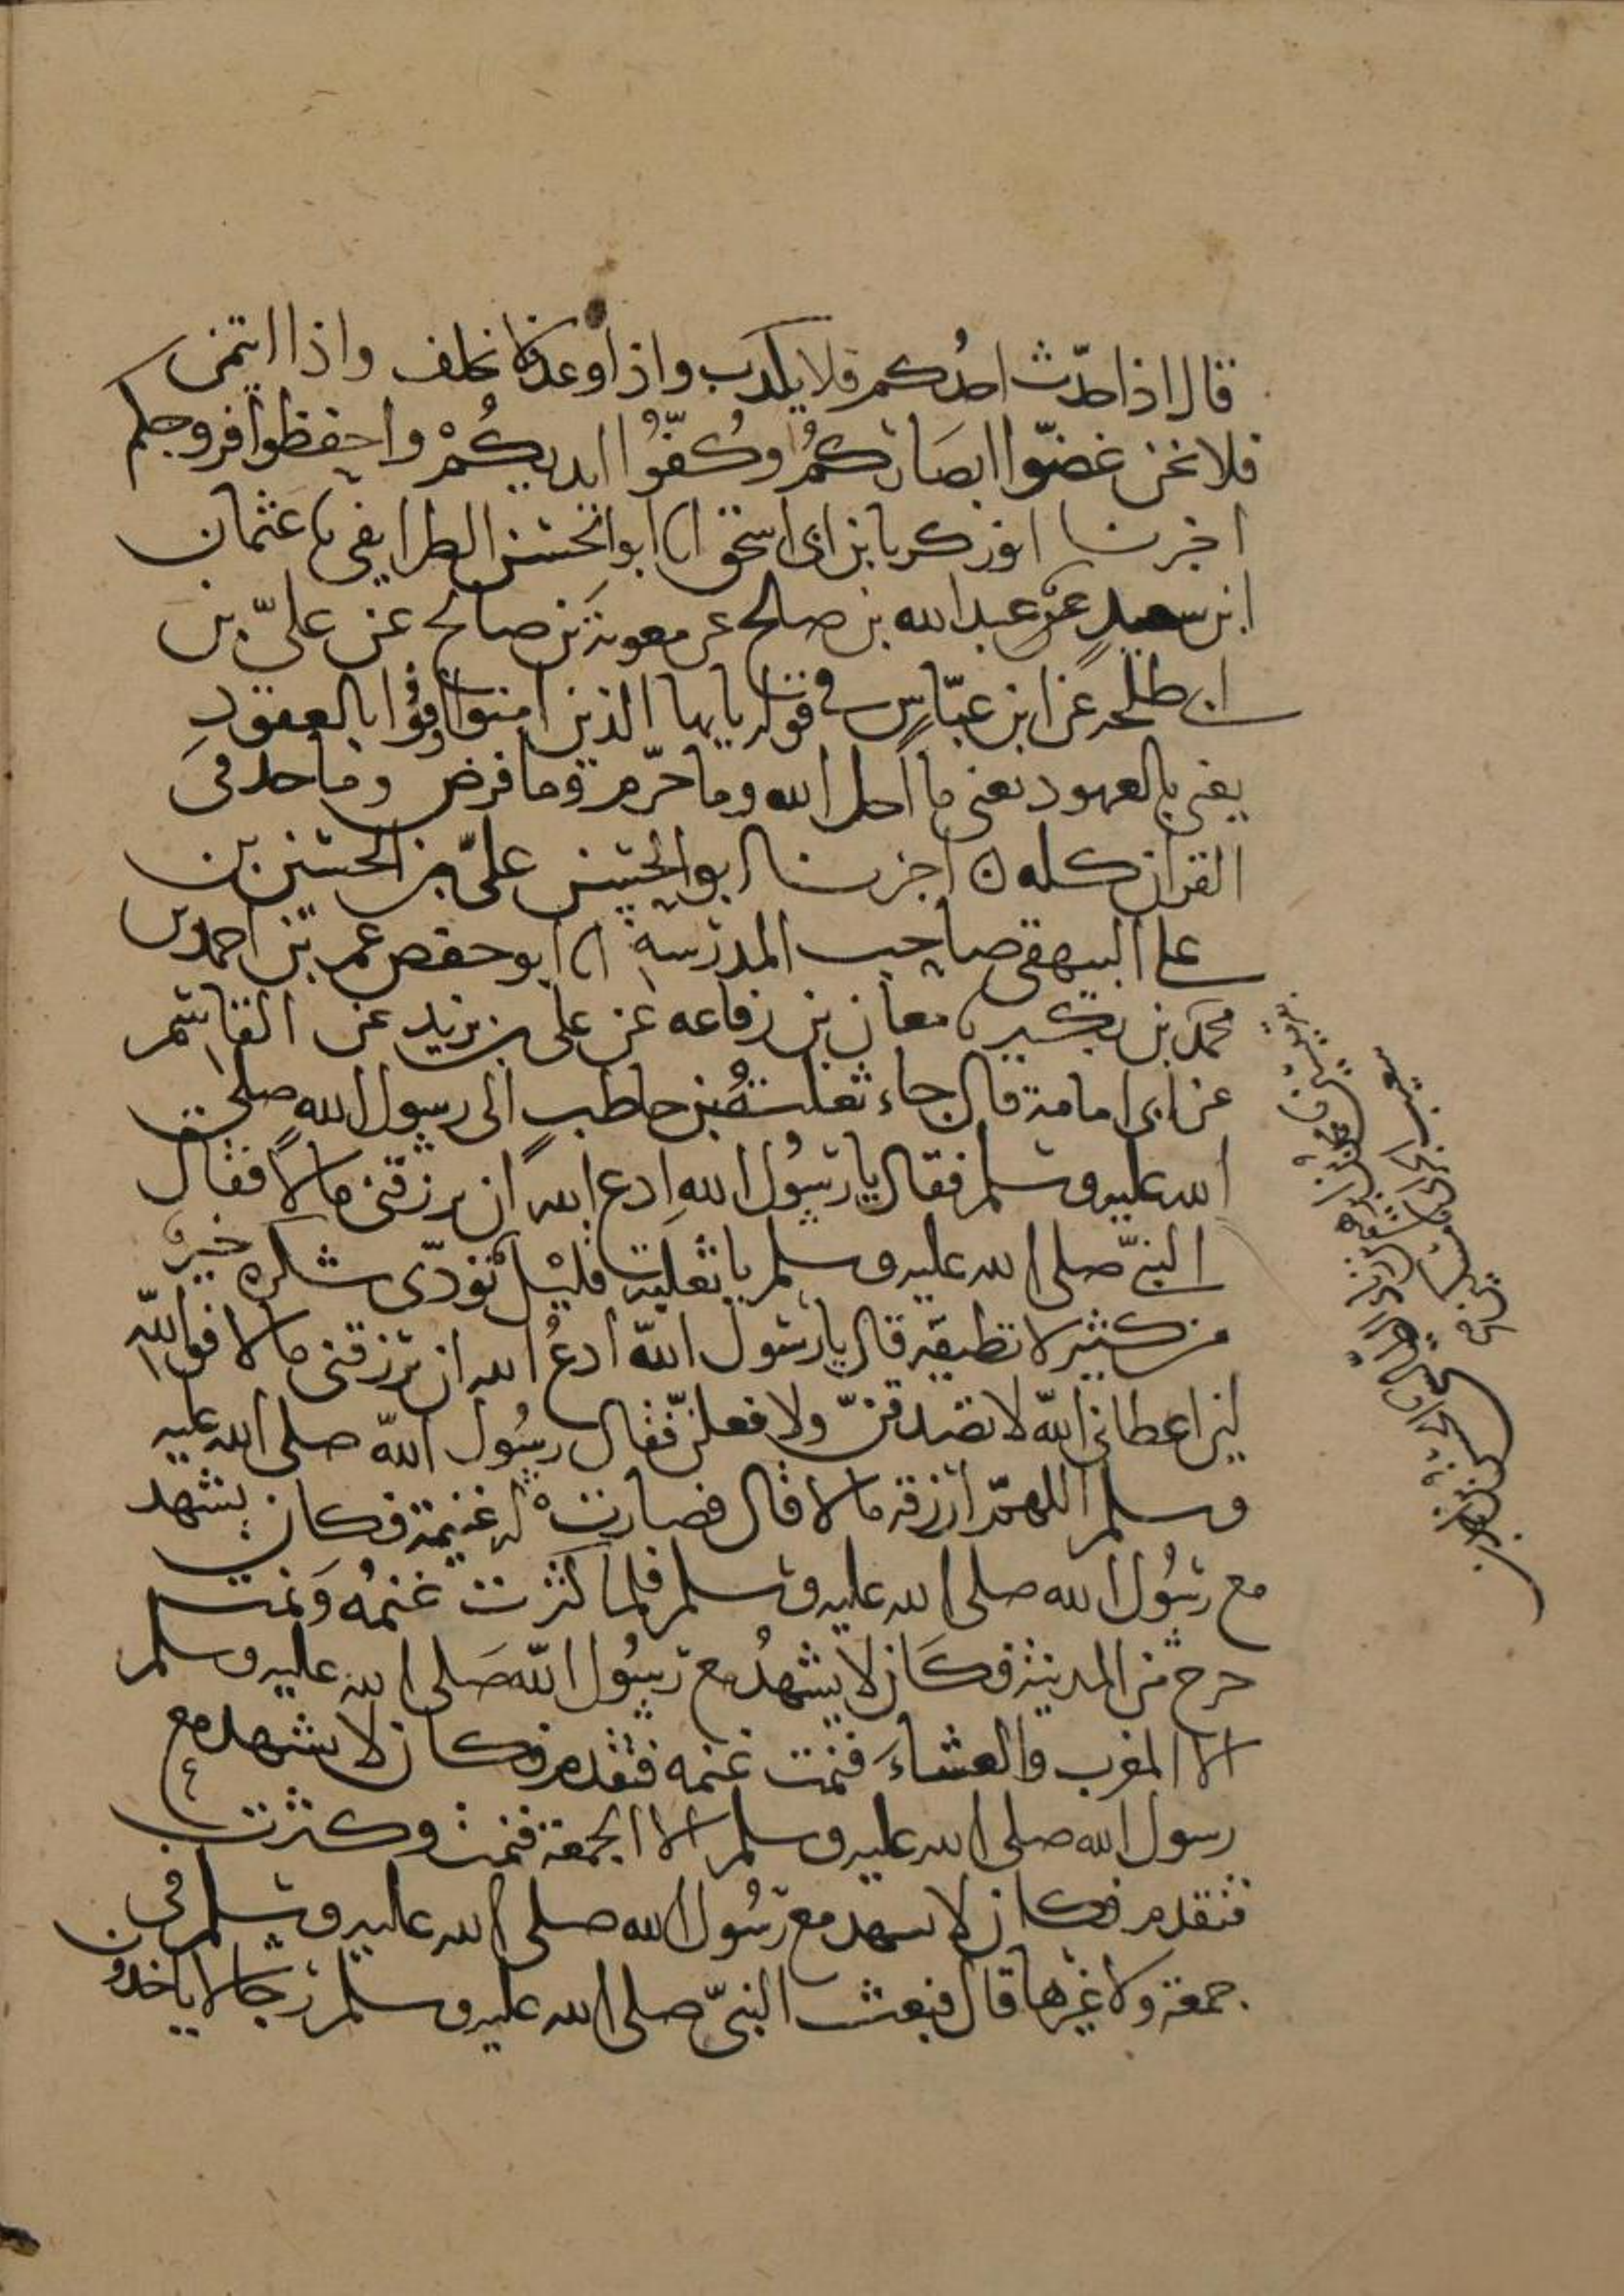 قال اذا حدّث احدُكم فلا يكذب واذا وعد فلا يخلف واذا ائتمن
فلا يخن غضّوا ابصَاركُمْ وكُفّوُا ايديكُمْ واحفظوا فروجكم
اخبرنا ابو زكريا بن ابى اسحق انا ابو الحسن الطرايفى نا عثمان
ابن سعيدٍ عن عبد الله بن صلح عن معوية بن صالح عن علىّ بن
ابى طلحه عن ابن عبّاسٍ فى قوله يايها الذين امنوا اوفُوا بالعقود
يعنى بالعهود يعنى ما احل الله وما حرّم وما فرض وما حد فى
القران كله اخبرنا ابو الحسن علىّ بن الحسين بن
على البيهقى صاحب المدرسة انا ابو حفص عمر بن احمد بن
محمد بن
نا معان بن رفاعه عن على بن يزيد عن القاسم
عن ابى امامة قال جاء ثعلبةُ بن حاطبٍ الى رسول الله صلى
الله عليه وسلم فقال يا رسُول الله ادع الله ان يرزقنى مالًا فقال
النبىّ صلى الله عليه وسلم يا ثعلبة قليلٌ تؤدّى شكره خيرٌ
من كثير لا تطيقه قال يا رسول الله ادعُ الله ان يرزقنى مالا فوالله
لين اعطانى الله لاتصدقنّ ولافعلنّ فقال رسُول الله صلى الله عليه
وسلم اللهمّ ارزقه مالا قال فصارت له غنيمة فكان يشهد
مع رسُول الله صلى الله عليه وسلم فلما كثرت غنمُه ونمت
خرج من المدينة فكَان لا يشهدُ مع رسُول الله صَلى الله عليه وسلم
الا المغرب والعشاءَ فنمت غنمه فتقدم فكان لا يشهد مع
رسول الله صلى الله عليه وسلم الا الجمعة فنمت وكثرت
فتقدم فكان لا يسهد مع رسُول الله صلى الله عليه وسلم فى
جمعة ولا غيرها قال فبعث النبىّ صلى الله عليه وسلم رجالا ياخذون